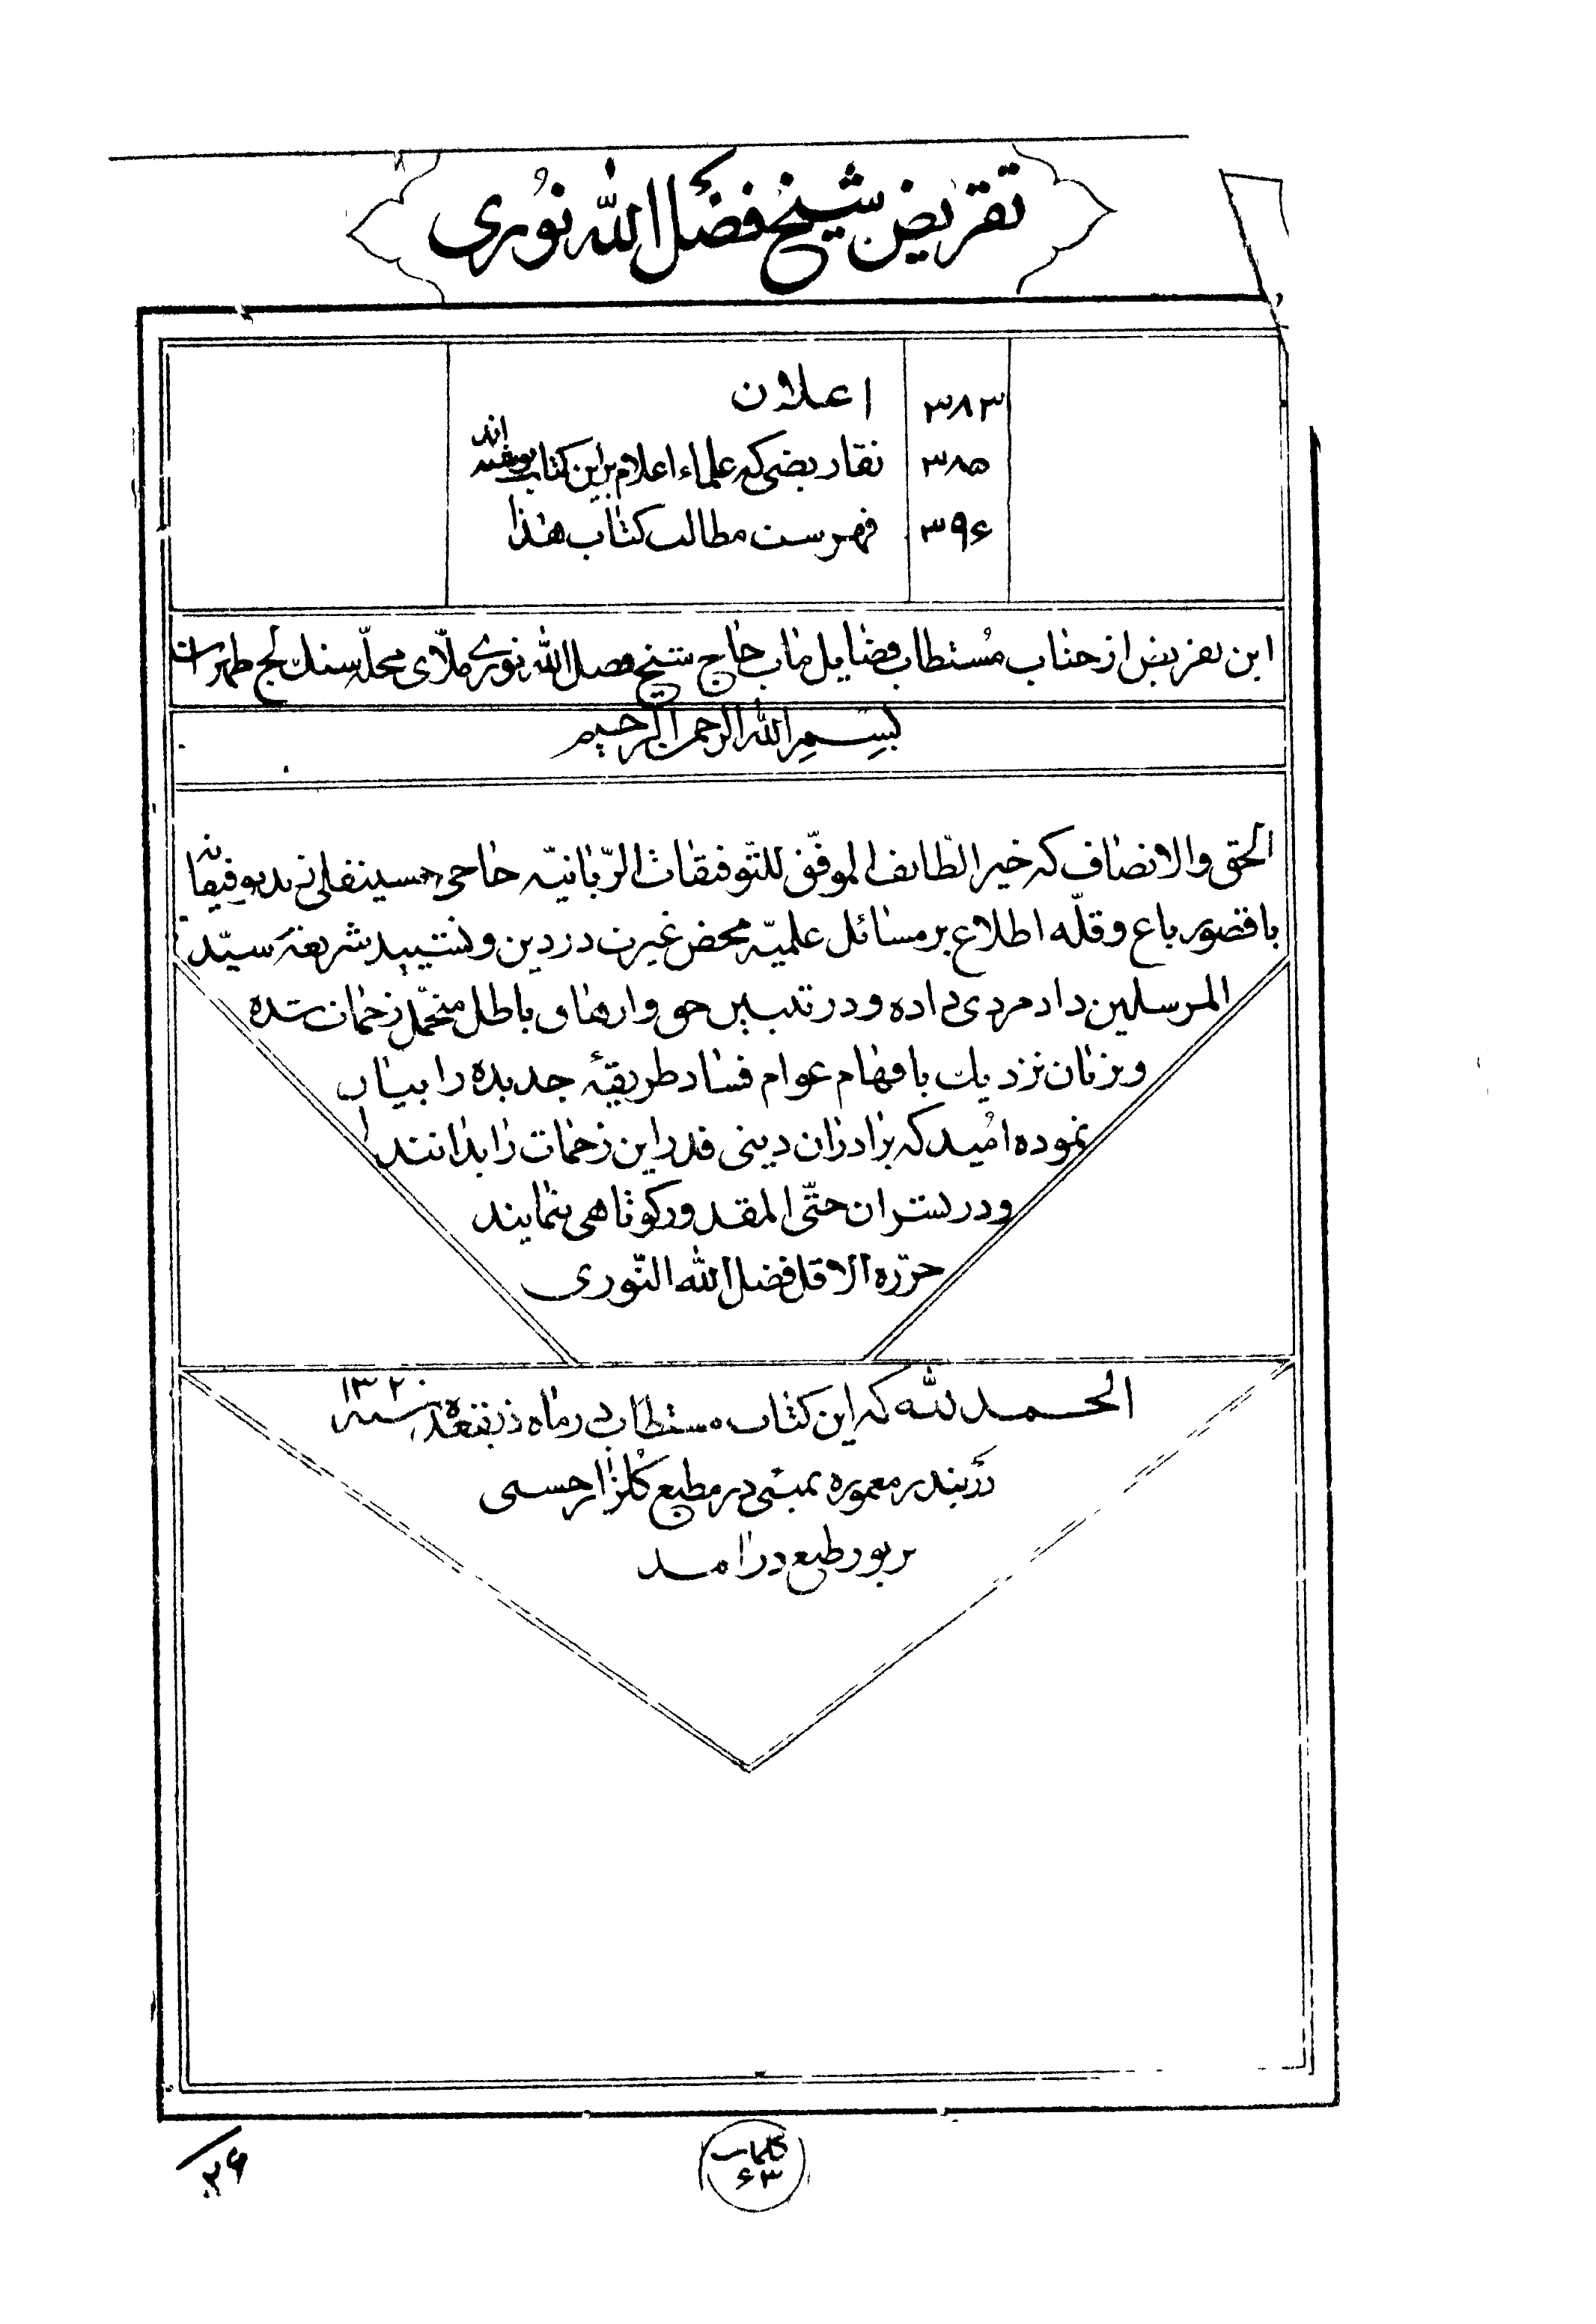 تقریض شیخ فضل الله نوری
۳۸۳ اعلان
۳۸۵ تقاریضی که علماء اعلام بر این کتاب نوشته اند
۳۹۶ فهرست مطالب کتاب هذا
این تقریض از جناب مُستطاب فضایل مآب حاج شیخ فضل الله نوری ملّای محلّه سنگلج طهران
بِسْمِ الله الرحمن الرحیم
الحق والانصاف که خیر الطّائف الموفّق للتّوفیقات الرّبانیّه حاجی حسینقلی زید توفیقاته
با قصور باع و قلّه اطلاع بر مسائل علمیّه محض غیرت در دین و تشیید شریعهٔ سیّد
المرسلین داد مردی داده و در تبیین حق و ازهاق باطل متحمّل زحمات شده
و بزبان نزدیك بافهام عوام فساد طریقهٔ جدیده را بیان
نموده اُمید که برادران دینی قدر این زحمات را بدانند
و در نشر ان حتّی المقدور کوتاهی ننمایند
حرّره الاقل فضل الله النّوری
الحمد لله که این کتاب مستطاب در ماه ذیقعده سنه ۱۳۲۰
در بندر معموره بمبئی در مطبع گلزار حسنی
بزیور طبع درامد
کلمات
۶۳
۲۶